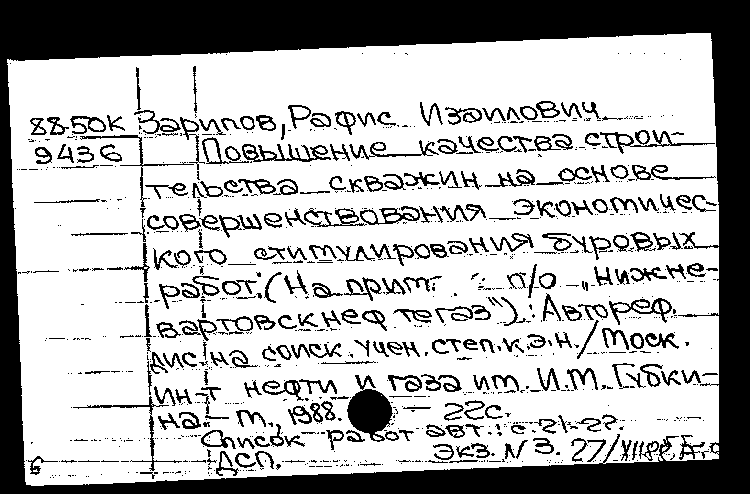 88-50К Зарипов, Рафис Изаилович.
9436 Повышение качества строи-
тельства скважин на основе
совершенствования экономичес-
кого стимулирования буровых
работ: (На прим. п/о „Нижне-
вартовскнефтегаз"): Автореф.
дис. на соиск. учен. степ. к.э.н. / Моск.
ин-т нефти и газа им. И.М. Губки-
на. - М., 1988. - 22с.
Список работ авт.: с. 21-22.
ДСП. Экз. N 3. 27/XII88
б